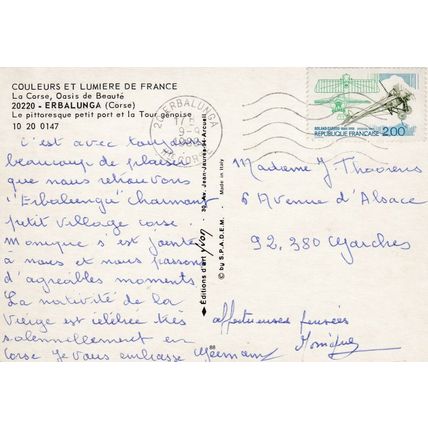 COULEURS ET LUMIERE DE FRANCE
La Corse, Oasis de Beauté
20220 - ERBALUNGA (Corse)
Le pittoresque petit port et la Tour génoise
10 20 0147
c'est avec
beaucoup de plaisir
que nous retrouvons
"Erbalunga" charmant
petit village corse.
Monique s'est jointe
à nous et nous passons
d'agréables moments
La nativité de la
Vierge est célébrée très
solennellement en
Corse Je vous embrasse
affectueuses pensées
Monique
Editions d'art yvon - 30, Av. Jean-Jaurès - Arcueil
Made in Italy
© by S.P.A.D.E.M.
88
20 ERBALUNGA
17 H
9-9
1988
ROLAND GARROS 1888-1918
REPUBLIQUE FRANÇAISE 2,00
Madame J Thoorens
6 Avenue d'Alsace
92,380 Garches